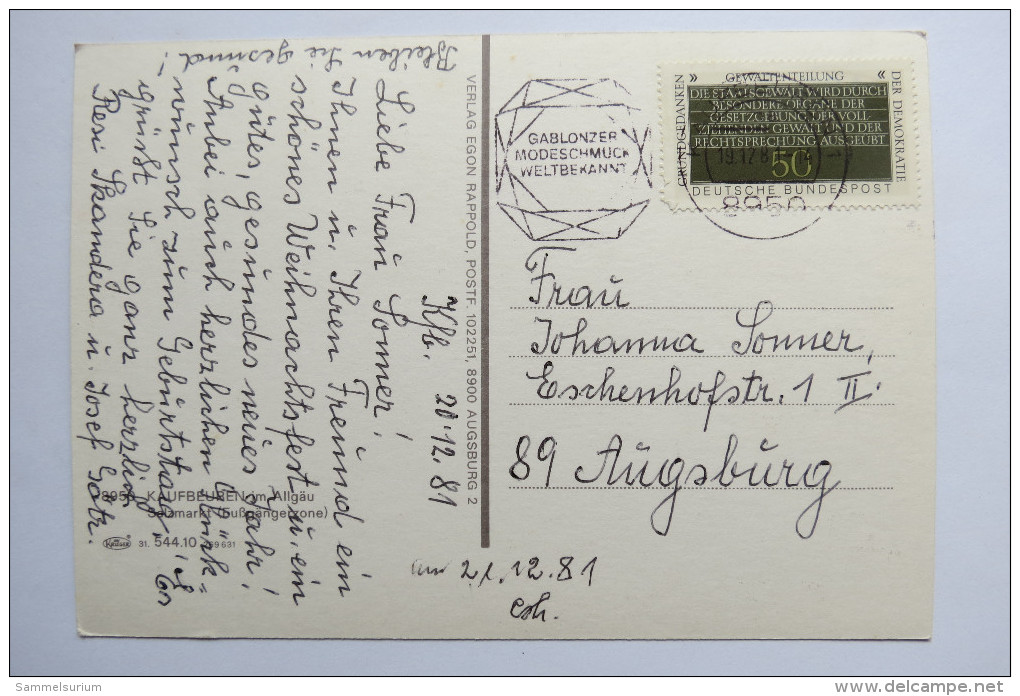 Kfb. 20.12.81
Liebe Frau Sonner!
Ihnen u. Ihren Freund ein
schönes Weihnachtsfest u. ein
gutes, gesundes neues Jahr!
Anbei auch herzlichen Glück=
wunsch zum Geburtstag! Es
grüßt Sie ganz herzlich
Resi Skandera u. Josef
Bleiben Sie gesund!
8950 KAUFBEUREN im Allgäu
Salzmarkt (Fußgängerzone)
KRÜGER
31. 544.10 769 631
VERLAG EGON RAPPOLD, POSTF. 102251, 8900 AUGSBURG 2
GABLONZER
MODESCHMUCK
WELTBEKANNT
8950
GRUNDGEDANKEN
DER DEMOKRATIE
» GEWALTENTEILUNG «
DIE STAATSGEWALT WIRD DURCH
BESONDERE ORGANE DER
GESETZGEBUNG, DER VOLL-
ZIEHENDEN GEWALT UND DER
RECHTSPRECHUNG AUSGEÜBT
50
DEUTSCHE BUNDESPOST
Frau
Johanna Sonner,
Eschenhofstr. 1 II.
89 Augsburg
am 21.12.81
erh.
Sammelsurium
delcampe.net